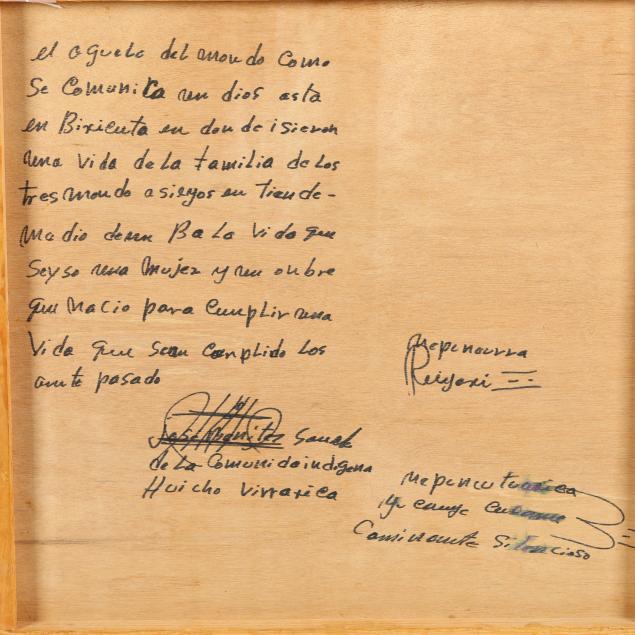 el aguelo del mondo como
se comunica un dios asta
en Biricuta en don de isieron
una vida de la familia de los
tres mondo asieyos en tiende-
madio de un Ba la vida que
Seyso una Mujer y un onbre
que Nacio para Cumplir una
Vida que sean Complido Los
ante pasado
José Benítez Sanch
de la Comunida indigena
Huicho Virrarica
Mepenourra
Reiyari
Mepencu
ya
Caminante Silencioso